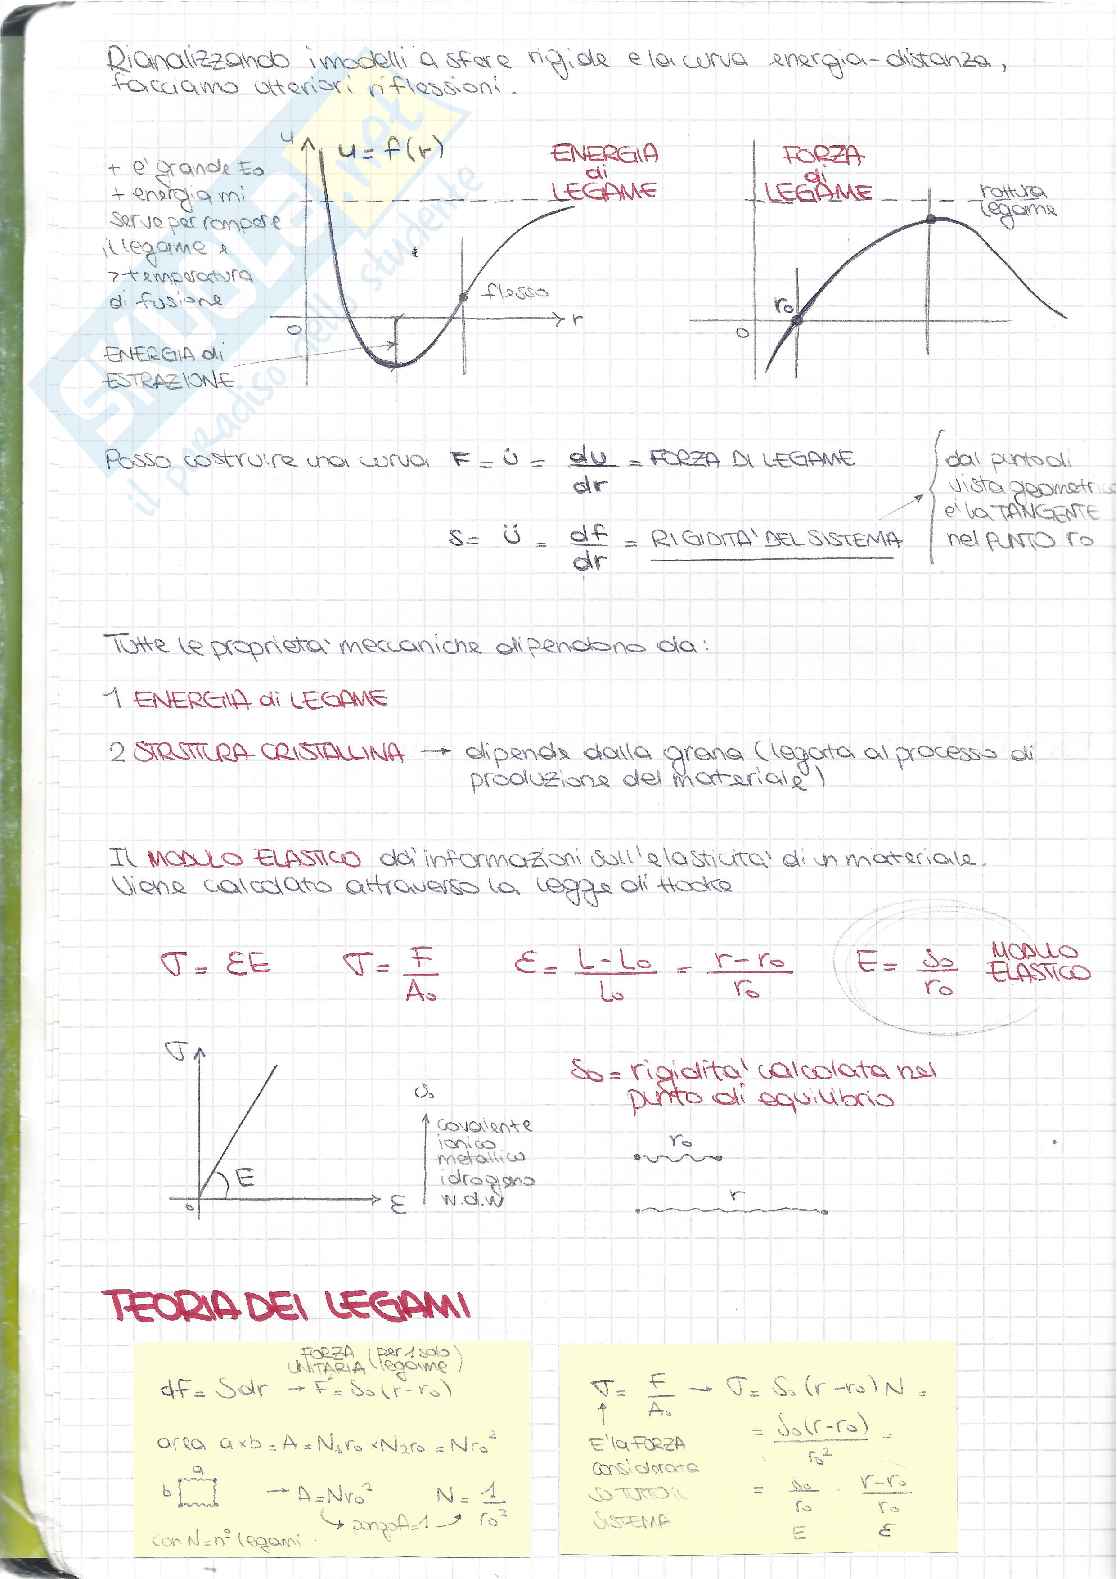 Rianalizzando i modelli a sfere rigide e la curva energia-distanza,
facciamo ulteriori riflessioni.
+ e' grande E₀
+ energia mi
serve per rompere
il legame e
> temperatura
di fusione
ENERGIA di
ESTRAZIONE
u
u = f(r)
ENERGIA
di
LEGAME
flesso
r
0
FORZA
di
LEGAME
rottura
legame
r₀
0
SKUOLA.net
il paradiso dello studente
Posso costruire una curva F = u̇ = du/dr = FORZA DI LEGAME
S = ü = df/dr = RIGIDITA' DEL SISTEMA
dal punto di
vista geometrico
e' la TANGENTE
nel PUNTO r₀
Tutte le proprieta' meccaniche dipendono da:
1 ENERGIA di LEGAME
2 STRUTTURA CRISTALLINA → dipende dalla grana (legata al processo di
produzione del materiale)
Il MODULO ELASTICO da' informazioni sull'elasticita' di un materiale.
Viene calcolato attraverso la legge di Hooke
σ = εE σ = F/A₀ ε = L-L₀/L₀ = r-r₀/r₀ E = S₀/r₀ MODULO
ELASTICO
σ
E
0
ε
S₀
covalente
ionico
metallico
idrogeno
w.d.w
S₀ = rigidita' calcolata nel
punto di equilibrio
r₀
r
TEORIA DEI LEGAMI
FORZA (per 1 solo
UNITARIA legame)
dF = Sdr → F = S₀(r-r₀)
area a×b = A = N₁r₀ × N₂r₀ = Nr₀²
a
b
→ A = Nr₀² N = 1/r₀²
pongo A=1
con N = n° legami.
σ = F/A₀ → σ = S₀(r-r₀)N =
= S₀(r-r₀)/r₀² =
E' la FORZA
considerata
SU TUTTO IL
SISTEMA
= S₀/r₀ · r-r₀/r₀
E ε